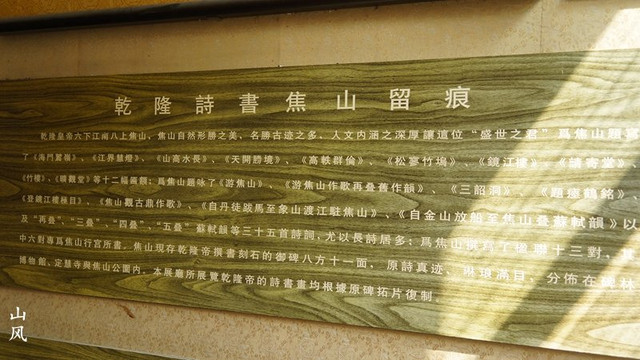 乾隆詩書焦山留痕
乾隆皇帝六下江南八上焦山，焦山自然形勝之美，名勝古迹之多，人文内涵之深厚讓這位“盛世之君”爲焦山題寫
了《海門萬嶺》、《江界慈燈》、《山高水長》、《天開勝境》、《高軼群倫》、《松寥竹塢》、《鏡江樓》、《讀寄堂》、
《竹樓》、《曠觀堂》等十二幅匾額；爲焦山題咏了《游焦山》、《游焦山作歌再叠舊作韻》、《三詔洞》、《題瘞鶴銘》、
《登鏡江樓極目》、《焦山觀古鼎作歌》、《自丹徒跋馬至象山渡江駐焦山》、《自金山放船至焦山叠蘇軾韻》以
及“再叠”、“三叠”、“四叠”、“五叠”蘇軾韻等三十五首詩詞，尤以長詩居多；爲焦山撰寫了楹聯十三對，其
中六對專爲焦山行宫所書。焦山現存乾隆帝撰書刻石的御碑八方十一面，原詩真迹，琳琅滿目，分佈在碑林
博物館、定慧寺與焦山公園内。本展廳所展覽乾隆帝的詩書畫均根據原碑拓片復制。
山风